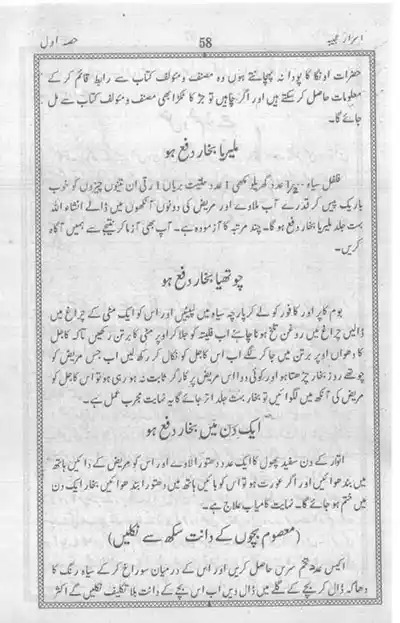 اسرار عجیبہ 58 حصہ اول
حضرات اونگا کا پودا نہ پہچانتے ہوں وہ مصنف و مؤلف کتاب سے رابطہ قائم کر کے
معلومات حاصل کر سکتے ہیں اور اگر چاہیں تو جڑ کا ٹکڑا بھی مصنف و مؤلف کتاب سے مل
جائے گا۔
ملیریا بخار دفع ہو
فلفل سیاہ عدد گھریلو مکھی ۱ عدد حلتیت بریاں ۱ رتی ان تینوں چیزوں کو خوب
باریک پیس کر قدرے آب ملاوے اور مریض کی دونوں آنکھوں میں ڈالے انشاء اللہ
بہت جلد ملیریا بخار دفع ہو گا۔ چند مرتبہ کا آزمودہ ہے۔ آپ بھی آزما کر نتیجے سے ہمیں آگاہ
کریں۔
چوتھیا بخار دفع ہو
بوم کا پر اور کافور کو لے کر پارچہ سیاہ میں لپیٹیں اور اس کو ایک مٹی کے چراغ میں
ڈالیں چراغ میں روغن تلخ ہونا چاہئے اب فلیتہ کو جلا کر اوپر مٹی کا برتن رکھیں تاکہ کاجل
کا دھواں اوپر برتن میں جا کر لگے اب اس کاجل کو نکال کر رکھ لیں اب جس مریض کو
چوتھے روز بخار چڑھتا ہو اور کوئی دوا اس مریض پر کارگر ثابت نہ ہو رہی ہو تو اس کاجل کو
مریض کی آنکھ میں لگوائیں تو بخار بہت جلد اتر جائے گا یہ نہایت مجرب عمل ہے۔
ایک دن میں بخار دفع ہو
اتوار کے دن سفید پھول کا ایک عدد دھتورا لاوے اور اس کو مریض کے دائیں ہاتھ
میں بندھوائیں اور اگر عورت ہو تو اس کو بائیں ہاتھ میں دھتورا بندھوائیں بخار ایک دن
میں ختم ہو جائے گا۔ نہایت کامیاب علاج ہے۔
(معصوم بچوں کے دانت سکھ سے نکلیں)
اکیس عدد تخم سرس حاصل کریں اور اس کے درمیان سوراخ کر کے سیاہ رنگ کا
دھاگہ ڈال کر بچے کے گلے میں ڈال دیں اب اس بچے کے دانت بلا تکلیف نکلیں گے اکثر